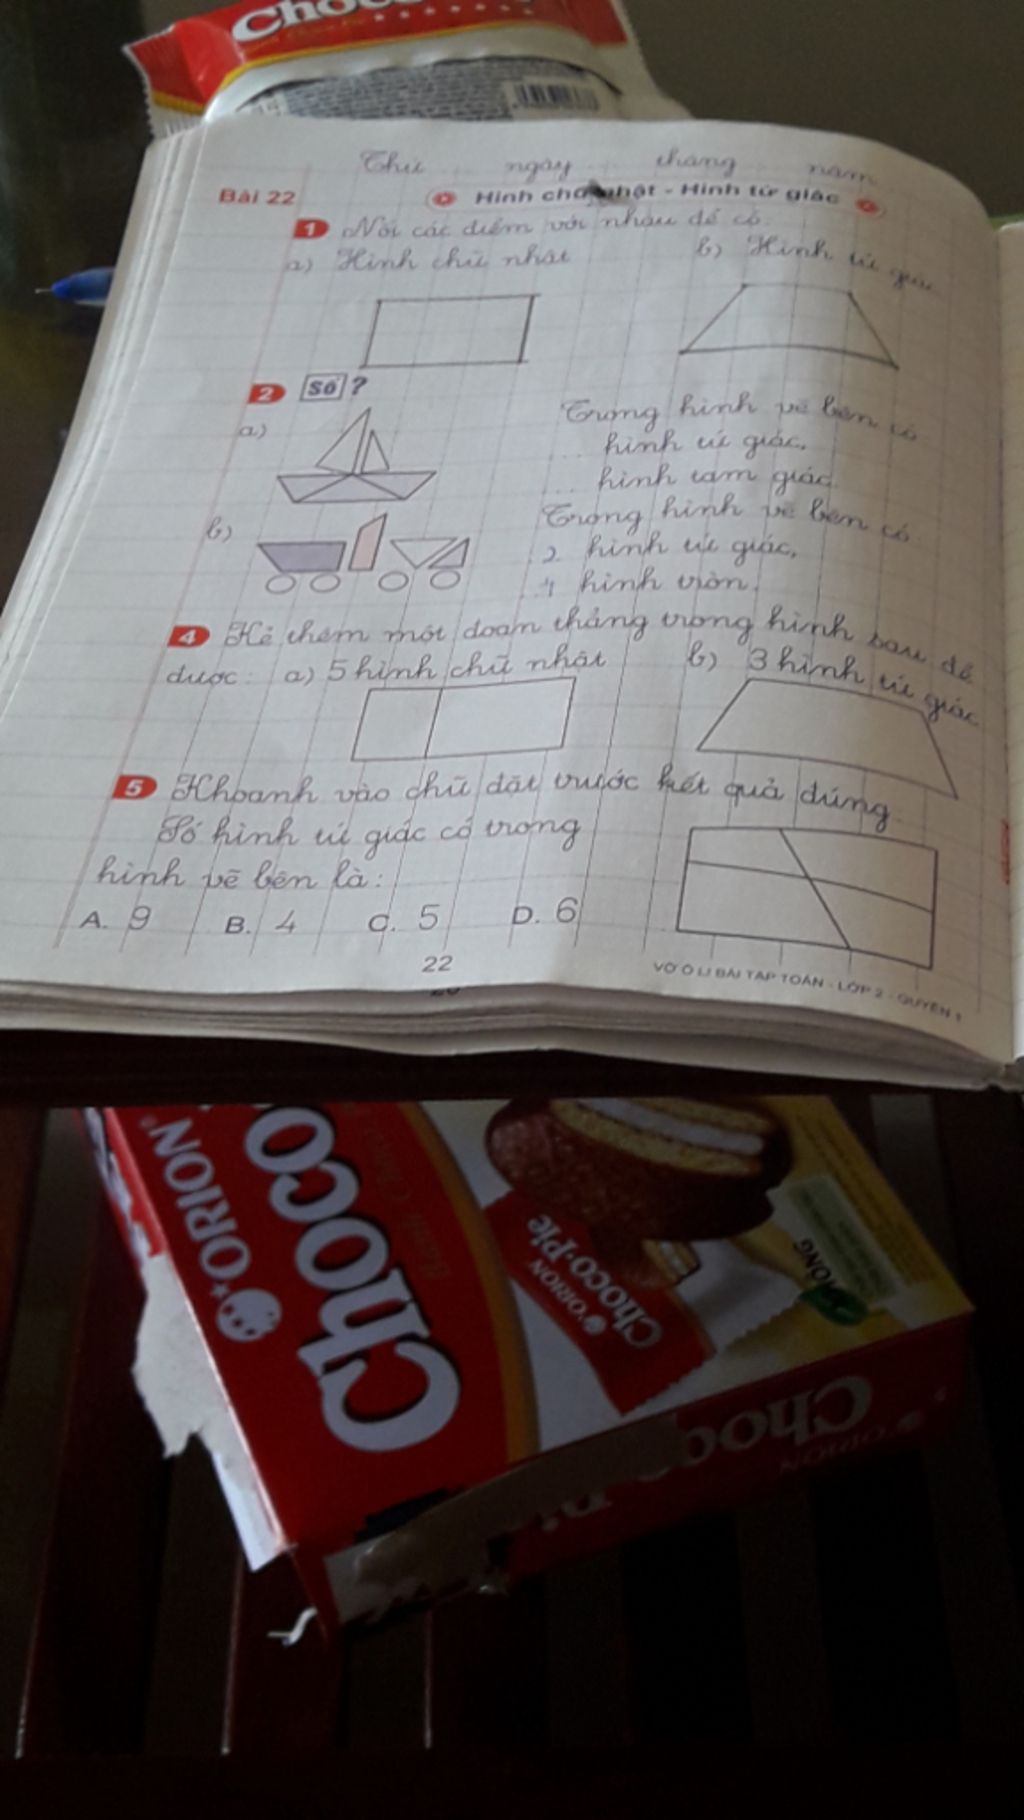 Choco
Thứ ngày tháng năm
Bài 22 Hình chữ nhật - Hình tứ giác
1 Nối các điểm với nhau để có
a) Hình chữ nhật b) Hình tứ giác
2 Số ?
a) Trong hình vẽ bên có
hình tứ giác,
hình tam giác.
b) Trong hình vẽ bên có
2 hình tứ giác,
4 hình tròn.
4 Kẻ thêm một đoạn thẳng trong hình sau để
được: a) 5 hình chữ nhật b) 3 hình tứ giác
5 Khoanh vào chữ đặt trước kết quả đúng.
Số hình tứ giác có trong
hình vẽ bên là:
A. 9 B. 4 C. 5 D. 6
22 VỞ Ô LI BÀI TẬP TOÁN - LỚP 2 - QUYỂN 1
ORION
Choco
ORION
Choco·Pie
Choco
ORION